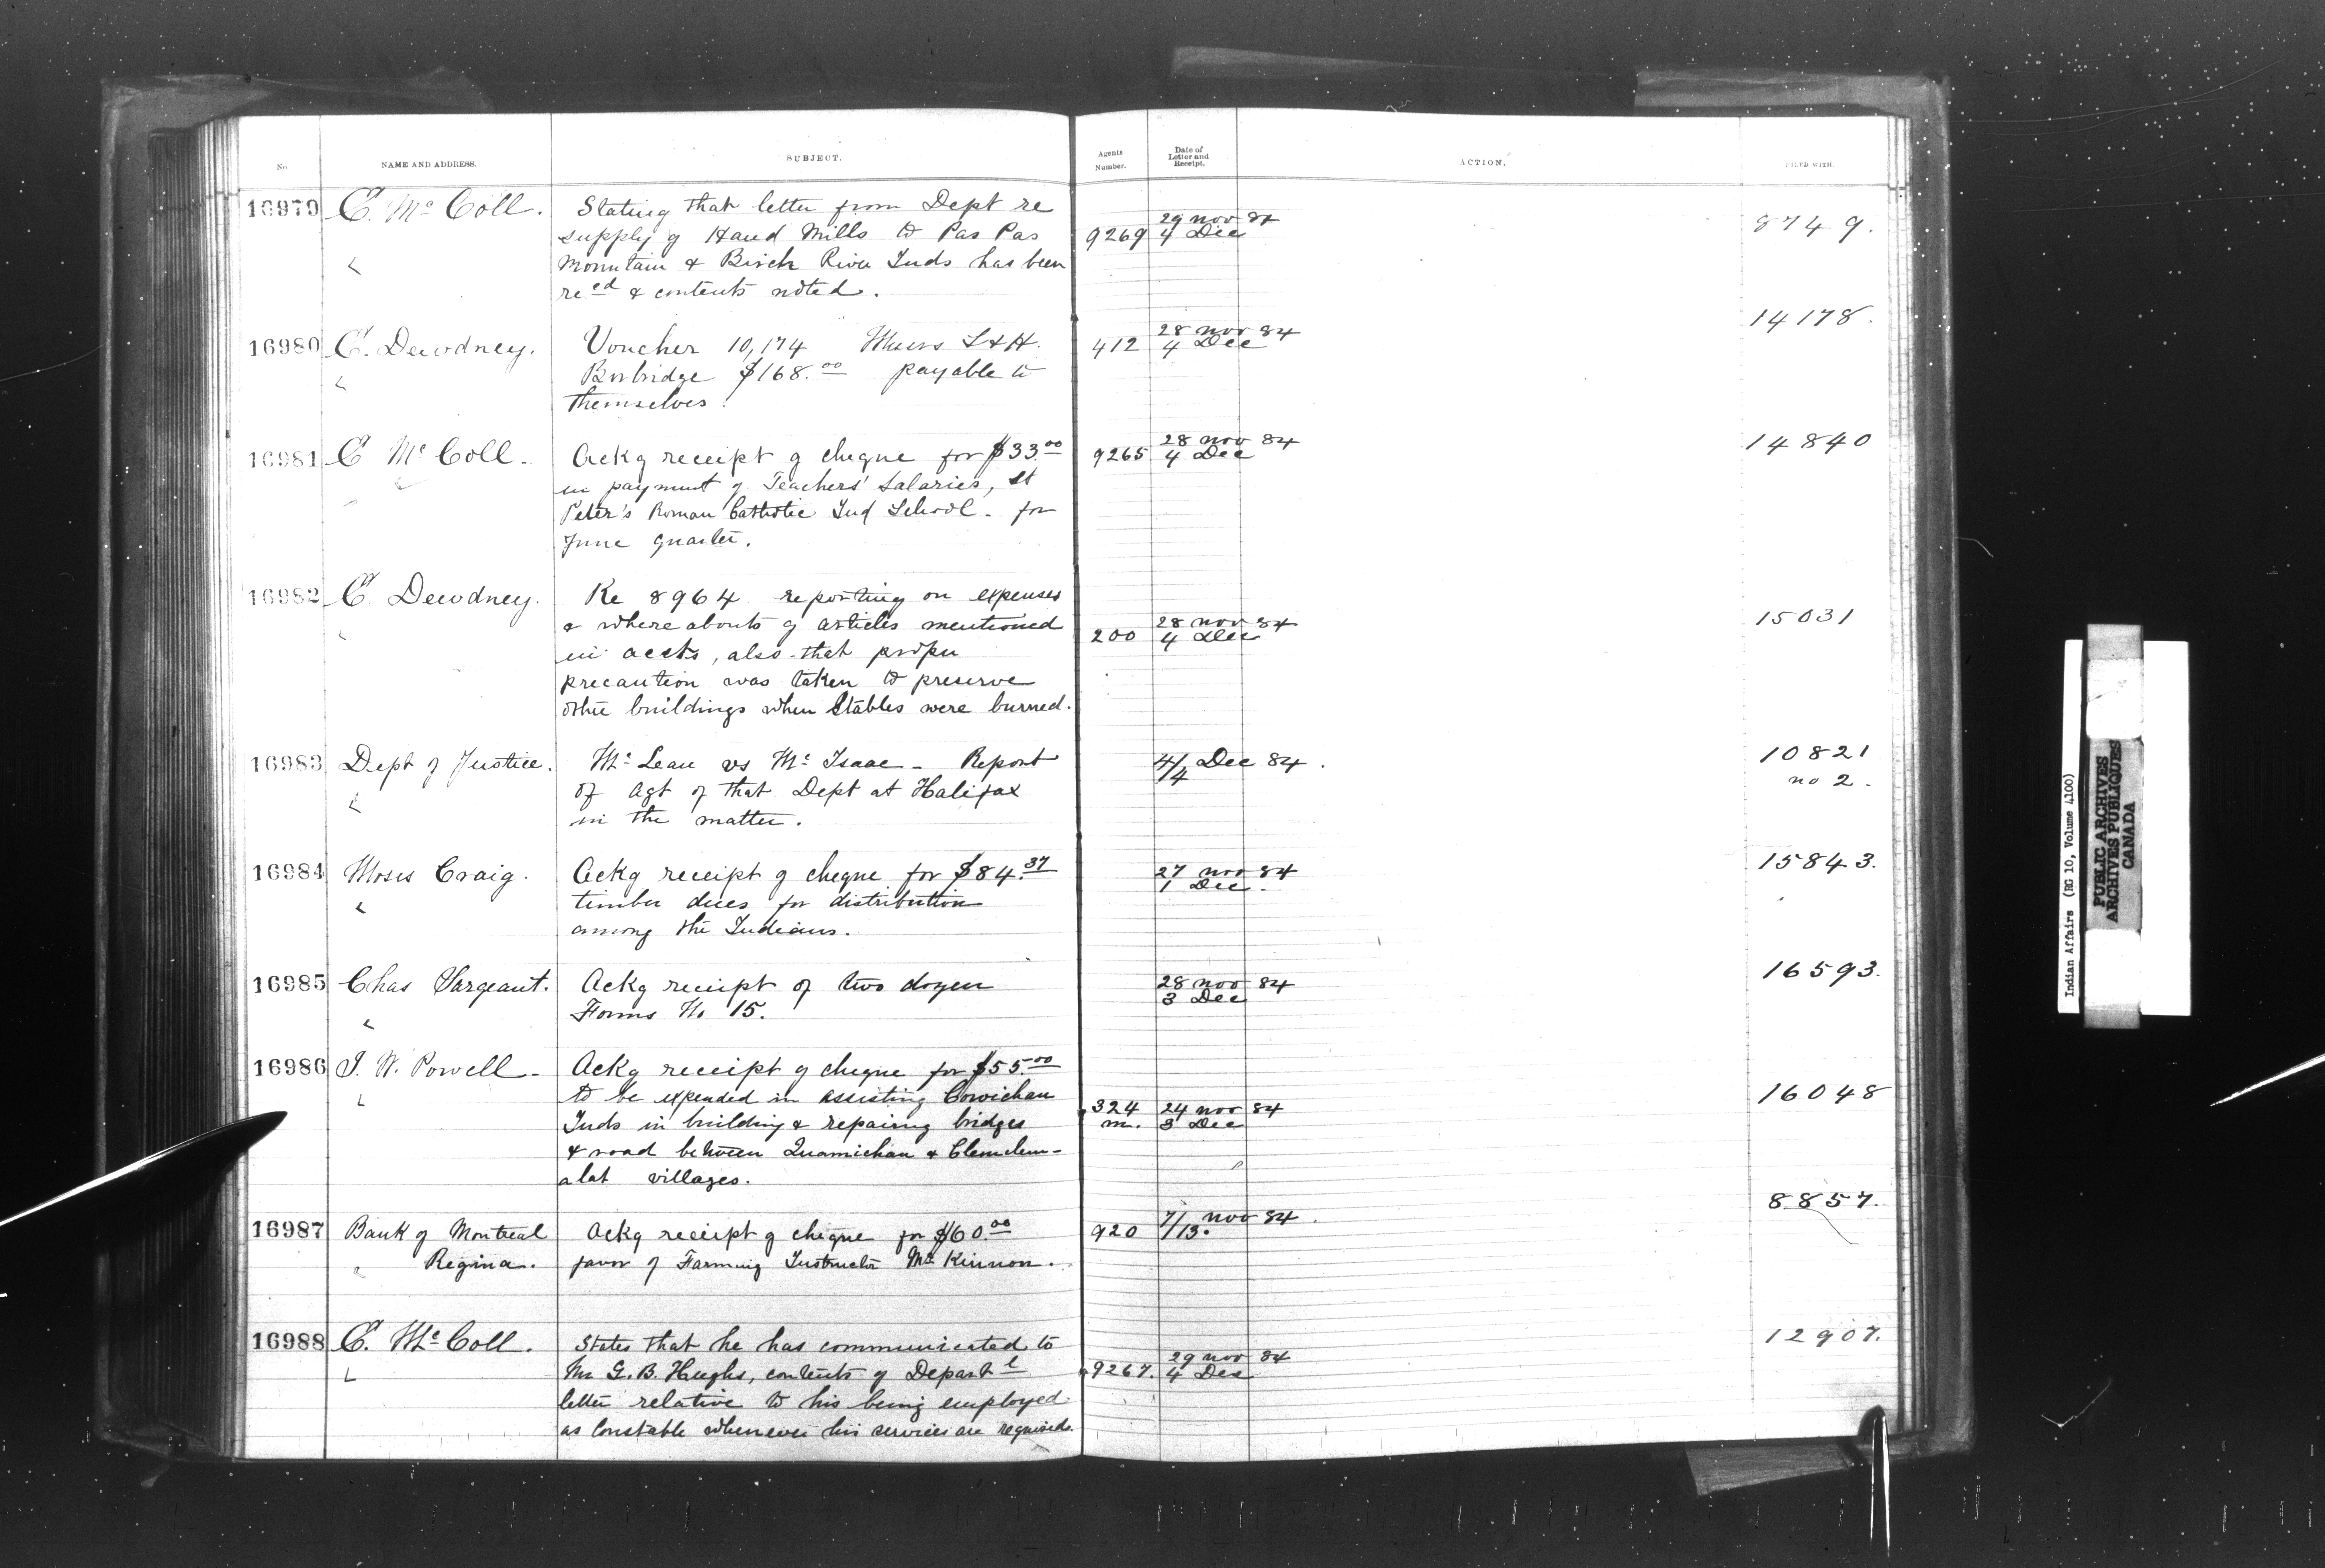 No NAME AND ADDRESS. SUBJECT. Agents Number. Date of Letter and Receipt. ACTION. FILED WITH.
16979 E. McColl. Stating that letter from Dept re
supply of Hand Mills to Pas Pas
Mountain & Birch River Inds has been
recd & contents noted.
9269 29 Nov 84
4 Dec
8749.
16980 E. Dewdney. Voucher 10,174 Messrs S & H.
Borbridge $168.00 payable to
themselves.
412 28 Nov 84
4 Dec
14178.
16981 E McColl. Ackg receipt of cheque for $33.00
in payment of Teachers' Salaries, St
Peter's Roman Catholic Ind School. for
June quarter.
9265 28 Nov 84
4 Dec
14840
16982 E. Dewdney. Re 8964 reporting on expenses
& whereabouts of articles mentioned
in accts, also that proper
precaution was taken to preserve
other buildings when Stables were burned.
200 28 Nov 84
4 Dec
15031
16983 Dept of Justice. McLean vs McIsaac - Report
of Agt of that Dept at Halifax
in the matter.
4/4 Dec 84.
10821
no 2.
16984 Moses Craig. Ackg receipt of cheque for $84.37
timber dues for distribution
among the Indians.
27 Nov 84
1 Dec.
15843.
16985 Chas Sargeant. Ackg receipt of two dozen
Forms No 15.
28 Nov 84
3 Dec
16593.
16986 I. W. Powell - Ackg receipt of cheque for $55.00
to be expended in assisting Cowichan
Inds in building & repairing bridges
& road between Quamichan & Clemclem-
alat villages.
324 24 Nov 84
m. 3 Dec
16048
16987 Bank of Montreal Ackg receipt of cheque for $60.00
Regina. favor of Farming Instructor McKinnon.
920 7/13. Nov 84.
8857.
16988 E. McColl. States that he has communicated to
Mr G. B. Hughs, contents of Departl
letter relative to his being employed
as Constable whenever his services are required.
9267. 29 Nov 84
4 Dec
12907.
Indian Affairs (RG 10, Volume 4100)
PUBLIC ARCHIVES
ARCHIVES PUBLIQUES
CANADA